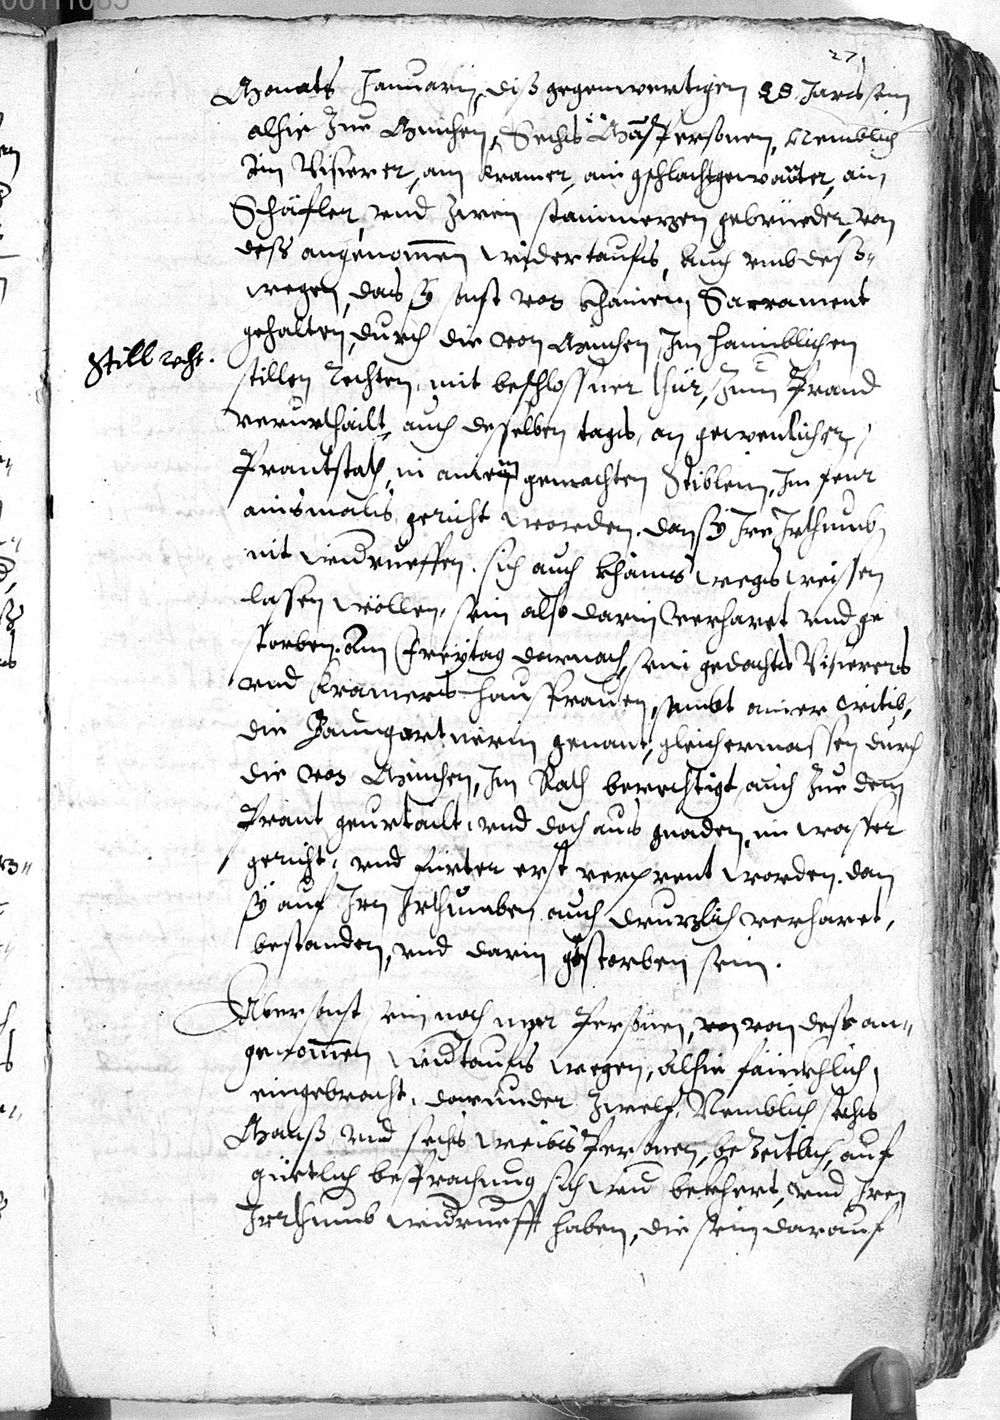 00111085
271
Monats Januarii, diß gegenwertigen 28 Jars sein
alhie Zue München, Sechs Mans Personen, Nemblich
Ain Visierer, ain Kramer, ain gschlachtgewanter, ain
Schäfler, vnd Zwen stainmezen gebrüeder, von
dess angenomen widertaufs, Auch vmb deß=
wegen, das sy sonst von khainem Sacrament
gehalten, durch die von München, Im haimblichen
Still recht.
stillen Rechten, mit beschlossner thür, Zum Prand
verurthailt, auch desselben tags, an gewenlicher
Prantstath, in ainem gemachten Stiblein, Im feur
ainsmals gericht worden. dan sy Irn Irthumb
nit widrueffen, sich auch khains wegs weissen
lassen wöllen, sein also darin verharet vnd ge
storben. Am Freytag darnach, sein gedachts Visierers
vnd Kramers haussfrauen, sambt ainer witib,
die Paungartnerin genant, gleichermassen durch
die von München, Im Rath berechtigt, auch Zue dem
Prant geurtailt, vnd doch aus gnaden, im wasser
gericht, vnd fürter erst verprent worden. dan
sy auf Irn Irthumben auch verharet,
bestanden, vnd darin gestorben sein.
Aber sonst ein noch mer Personen, von dess an=
genomen widtaufs wegen, alhie fänckhlich
eingebracht, darunder Zwelf, Nemblich sechs
Mans vnd sechs weibs Personen, bezeitlich, auf
güetlich besprachung sich widr bekhert, vnd Iren
Irrthumb widrueft haben, die sein darauf